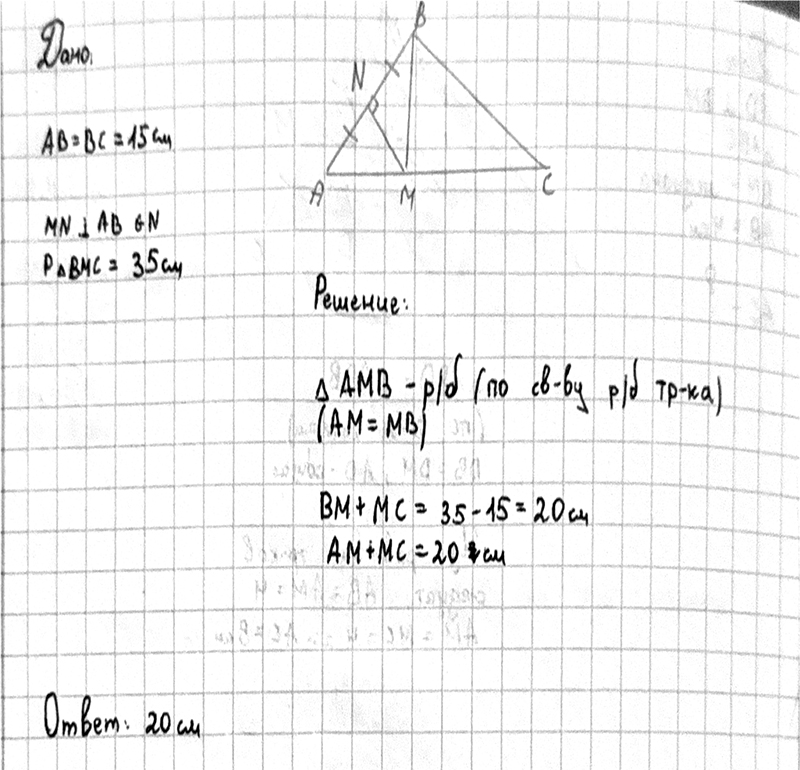 Дано:
B
N
A
M
C
AB = BC = 15 см
MN ⊥ AB ∈ N
P△BMC = 35 см
Решение:
△ AMB - р/б (по св-ву р/б тр-ка)
(AM = MB)
BM + MC = 35 - 15 = 20 см
AM + MC = 20 см
Ответ: 20 см